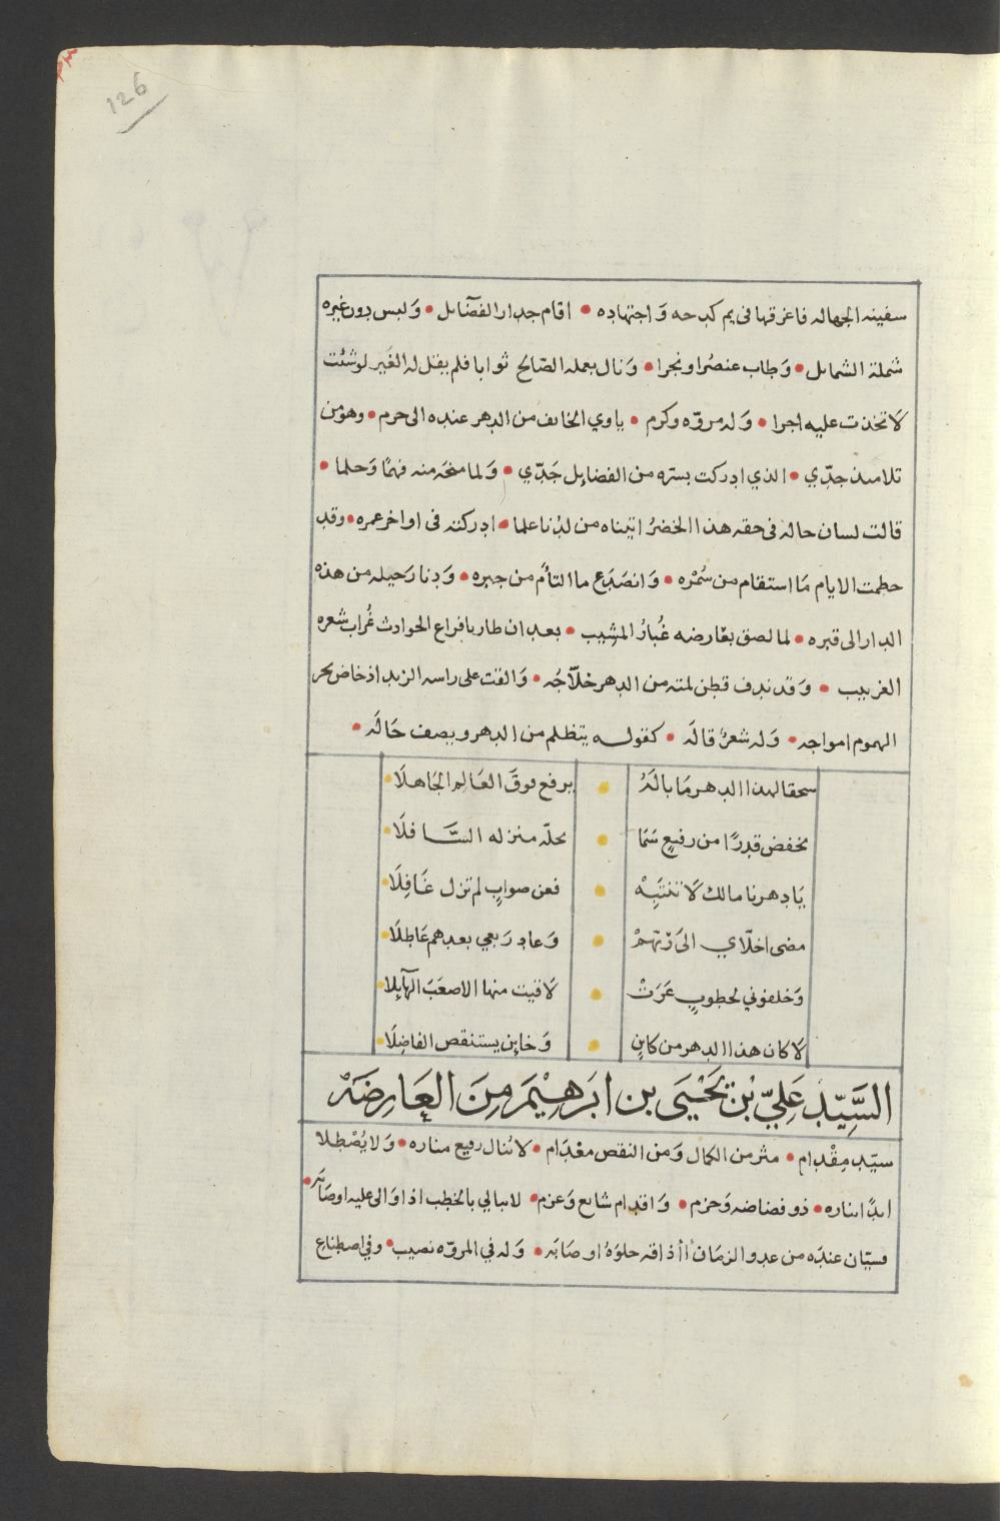 126
سفينه الجهاله فاغرقها فى يم كدحه وَاجتهاده • اقام جدار الفضآئل • وَلبس دون غيره
شملة الشمائل • وَطاب عنصُرا ونجرا • وَنال بعمله الصّالح ثوابا فلم يقل له الغَير لوشئت
لاتخذت عليه اجرا • وَله مروّه وكرم • ياوي الخائف من الدهر عنده الى حرم • وهو من
تلاميذ جدّي • الذي ادركت بسرّه من الفضايل جَدّي • وَلما منحَه منه فهمًا وَحلما •
قالت لسان حاله فى حقه هذا الخضرُ اتيناه من لدُنا علما • ادركته فى اواخر عمره • وقد
حطمت الايام مَا استقام من سُمْره • وَانصَدَع ما التأَم من جبره • وَدنا رَحيله من هذه
الدار الى قبره • لما لصق بعَارضه غُبارُ المشِيب • بعد ان طار بافراع الحوادث غُراب شعره
الغربيب • وَقد ندف قطن لمته من الدهر حَلّاجُه • وَالقت على راسه الزبد اذ خاض بحر
الهموم امواجه • وَله شعرٌ قالَه • كقوله يتظلم من الدهر ويصف حَالَه •
سحقا لهذا الدهر مَا بالَهُ • يرفع فوقَ العَالم الجَاهلَا
يخفض قدرًا من رفيعٍ سَمَا • يحلّه منزله السَّافلَا
يَا دهرنا مالك لَا تنتَبِهْ • فعن صوابٍ لم تزل غَافِلَا
مضى اخلّاي الىَ ذتهمْ • وَعاد رَبعي بعدهم عَاطِلَا
وَخلفوني لخطوبٍ عَرَتْ • لَاقيت منها الاصعَبَ الهآئِلا
لَا كان هذا الدهر من كاينٍ • وَخاين يستنقص الفاضِلَا
السَّيِّد عَلِيّ بْن يَحْيَى بن ابرَهِيْمَ مِنَ العَارِضَهْ
سيّد مِقْدام • مثرٍ من الكمال وَمن النقص معْدَام • لا تُنال رفيع مناره • وَلا يُصْطلا
ابدًا ناره • ذو فضاضه وَحزم • وَاقدام شايع وَعزم • لا يبالي بالخطب اذا وَالى عليه اوصَابَه •
فسيّان عندَه من عدو الزمَان أأذاقه حلوَهُ او صَابَه • وَله في المروّه نصيب • وفي اصطناع